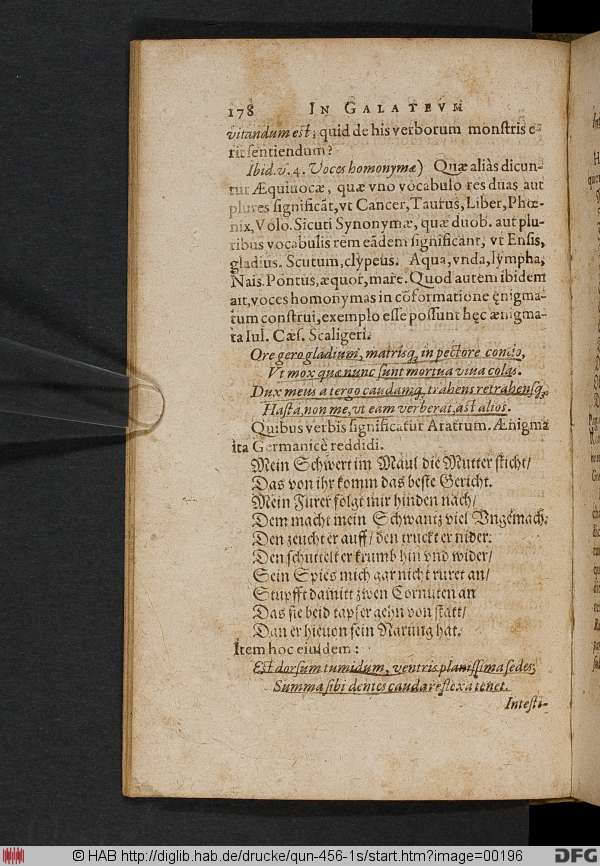 178 IN GALATEVM
vitandum est; quid de his verborum monstris e-
rit sentiendum?
Ibid. v. 4. Voces homonymæ) Quæ aliàs dicun-
tur Æquiuocæ, quæ vno vocabulo res duas aut
plures significãt, vt Cancer, Taurus, Liber, Phœ-
nix, Volo. Sicuti Synonymæ, quæ duob. aut plu-
ribus vocabulis rem eãdem significant, vt Ensis,
gladius. Scutum, clypeus. Aqua, vnda, lympha,
Nais. Pontus, æquor, mare. Quod autem ibidem
ait, voces homonymas in cõformatione ęnigma-
tum construi, exemplo esse possunt hęc ænigma-
ta Iul. Cæs. Scaligeri.
Ore gero gladium, matrisq, in pectore condo,
Vt mox quæ nunc sunt mortua viua colas.
Dux meus a tergo caudamq, trahens retrahensq,
Hasta, non me, vt eam verberat, ast alios.
Quibus verbis significatur Aratrum. Ænigma
ita Germanicè reddidi.
Mein Schwert im Maul die Mutter sticht/
Das von ihr komm das beste Gericht.
Mein Fürer folgt mir hinden nach/
Dem macht mein Schwantz viel Vngemach.
Den zeucht er auff/ den truckt er nider:
Den schüttelt er krumb hin vnd wider/
Sein Spies mich gar nicht rüret an/
Stupfft damitt zwen Cornuten an
Das sie beid tapfer gehn von statt/
Dan er hieuon sein Narung hat.
Item hoc eiusdem:
Est dorsum tumidum, ventris planissima sedes;
Summa sibi dentes cauda reflexa tenet.
Intesti-
© HAB http://diglib.hab.de/drucke/qun-456-1s/start.htm?image=00196
DFG